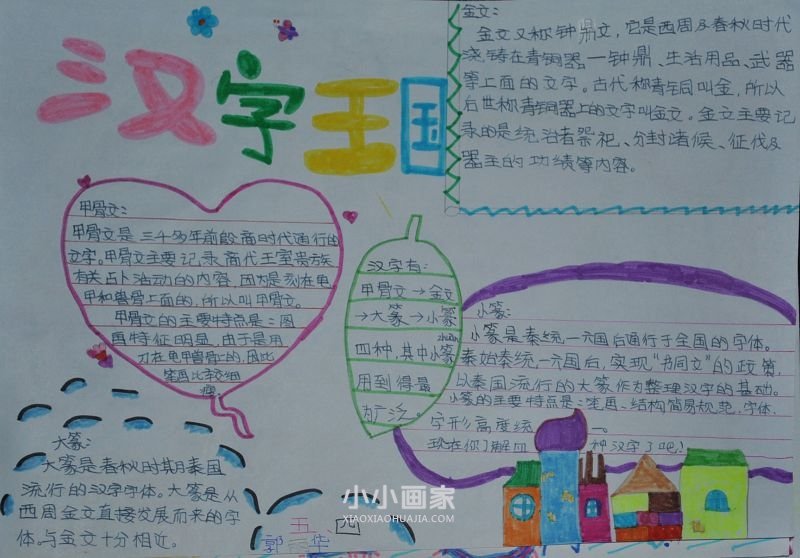 汉字王国
金文:
金文又称钟鼎文,它是西周及春秋时代
浇铸在青铜器—钟鼎、生活用品、武器
等上面的文字。古代称青铜叫金,所以
后世称青铜器上的文字叫金文。金文主要记
录的是统治者祭祀、分封诸候、征伐及
器主的功绩等内容。
甲骨文:
甲骨文是三千多年前殷商时代通行的
文字。甲骨文主要记录商代王室贵族
有关占卜活动的内容,因为是刻在龟
甲和兽骨上面的,所以叫甲骨文。
甲骨文的主要特点是:图
画特征明显,由于是用
刀在龟甲兽骨上的,因比
笔画比较细
瘦。
汉字有:
甲骨文→金文
→大篆→小篆
zhuàn
四种,其中小篆
用到得最
为广泛。
小篆:
小篆是秦统一六国后通行于全国的字体。
秦始秦统一六国后,实现“书同文”的政策,
以秦国流行的大篆作为整理汉字的基础。
小篆的主要特点是:笔画、结构简易规范,字体、
字形高度统一。
现在你了解四种汉字了吧!
大篆:
大篆是春秋时期秦国
流行的汉字字体。大篆是从
西周金文直接发展而来的字
体,与金文十分相近。
小小画家
XIAOXIAOHUAJIA.COM
五四